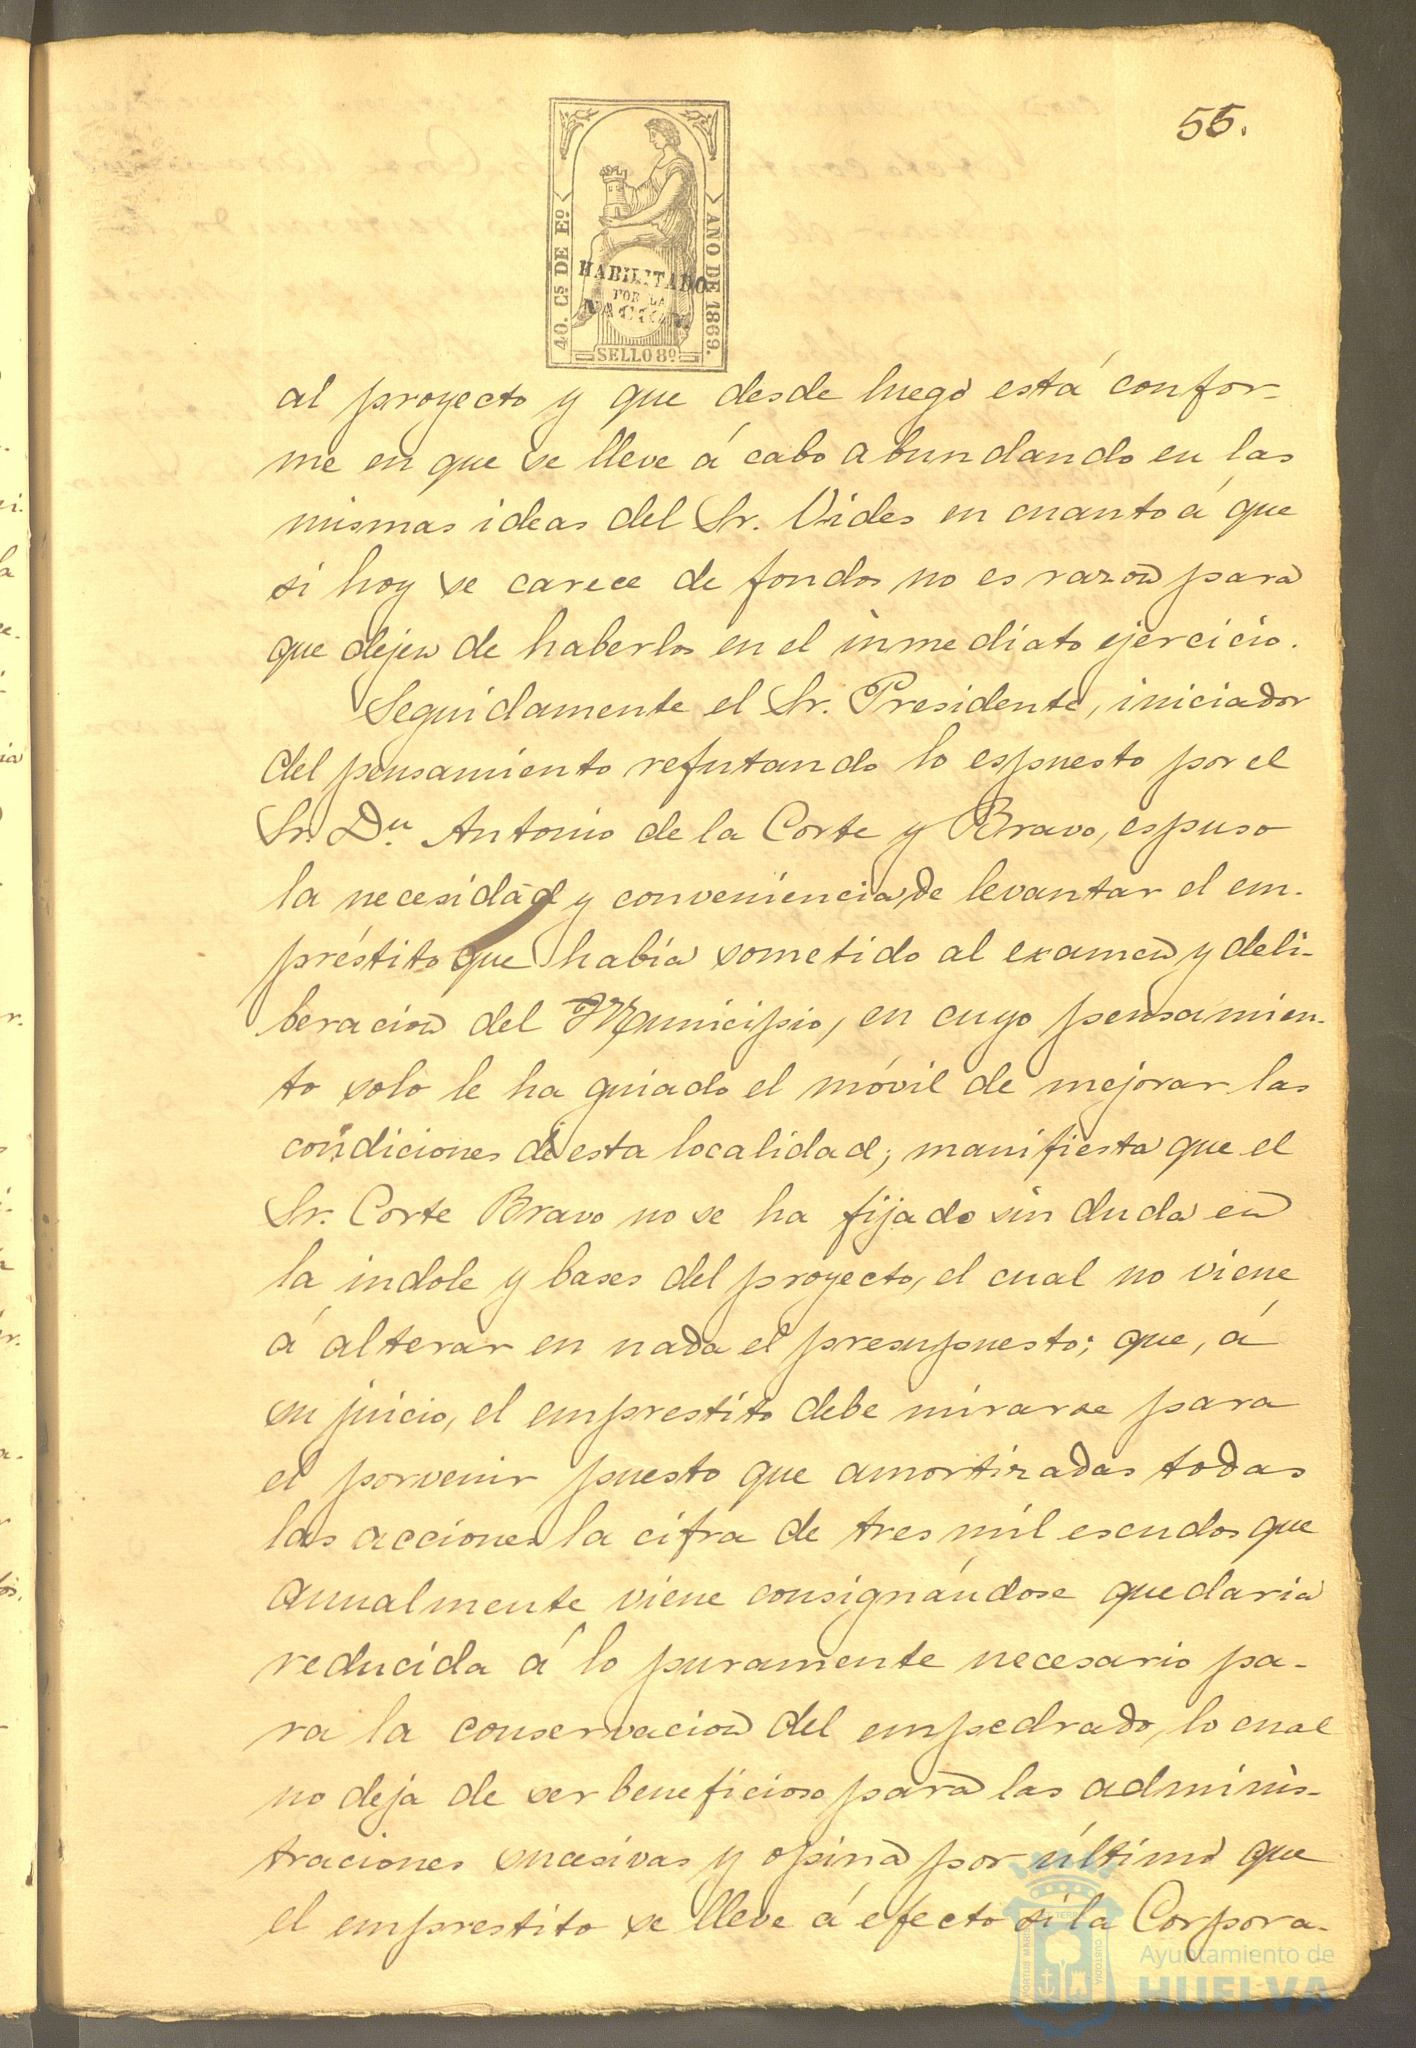 55.
40. Cs. DE Eo.
AÑO DE 1869.
HABILITADO
POR LA
NACION.
SELLO 8º
al proyecto y que desde luego está confor-
me en que se lleve á cabo abundando en las
mismas ideas del Sr. Vides en cuanto á que
si hoy se carece de fondos no es razon para
que dejen de haberlos en el inmediato ejercicio.
Seguidamente el Sr. Presidente, iniciador
del pensamiento refutando lo espuesto por el
Sr. Dn. Antonio de la Corte y Bravo, espuso
la necesidad y conveniencia de levantar el em-
préstito que había sometido al examen y deli-
beracion del Municipio, en cuyo pensamien-
to solo le ha guiado el móvil de mejorar las
condiciones de esta localidad; manifiesta que el
Sr. Corte Bravo no se ha fijado sin duda en
la indole y bases del proyecto, el cual no viene
á alterar en nada el presupuesto; que, á
su juicio, el emprestito debe mirarse para
el porvenir puesto que amortizadas todas
las acciones la cifra de tres mil escudos que
anualmente viene consignándose quedaria
reducida á lo puramente necesario pa-
ra la conservacion del empedrado, lo cual
no deja de ser beneficioso para las adminis-
traciones sucesivas y opina por último que
el emprestito se lleve á efecto si la Corpora-
Ayuntamiento de
HUELVA